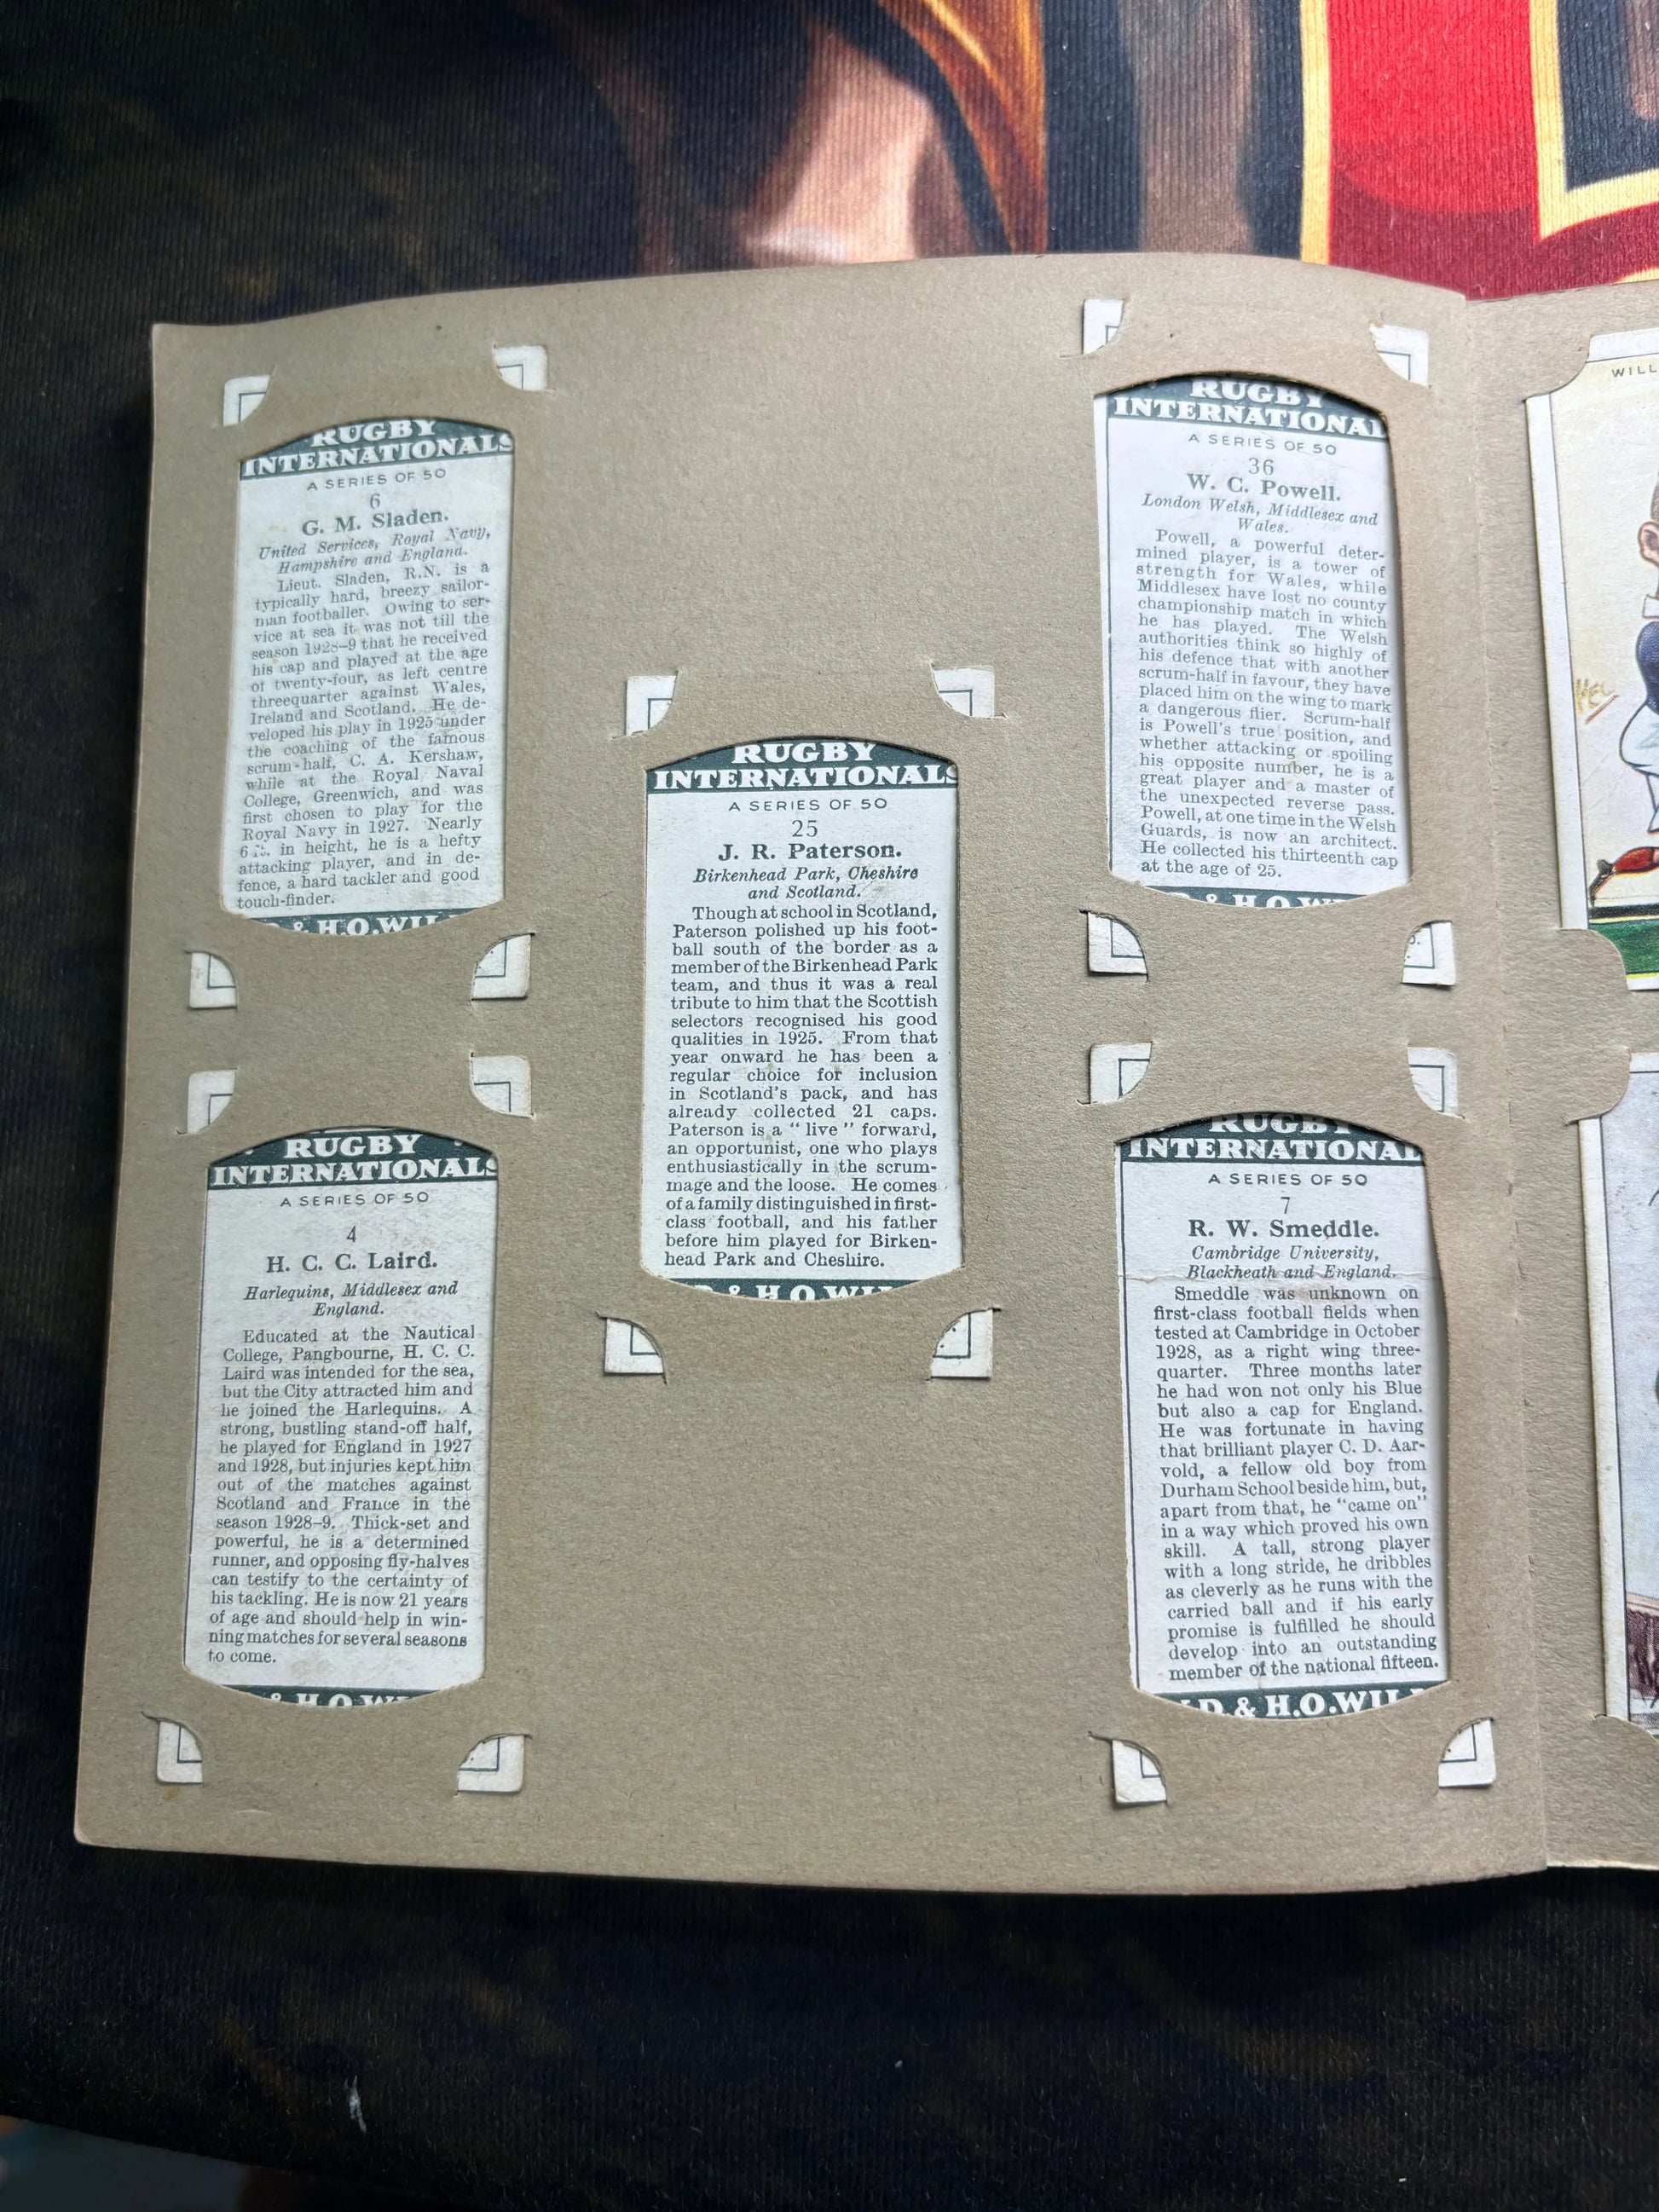 RUGBY
INTERNATIONALS
A SERIES OF 50
6
G. M. Sladen.
United Services, Royal Navy,
Hampshire and England.
Lieut. Sladen, R.N. is a
typically hard, breezy sailor-
man footballer. Owing to ser-
vice at sea it was not till the
season 1928–9 that he received
his cap and played at the age
of twenty-four, as left centre
threequarter against Wales,
Ireland and Scotland. He de-
veloped his play in 1925 under
the coaching of the famous
scrum-half, C. A. Kershaw,
while at the Royal Naval
College, Greenwich, and was
first chosen to play for the
Royal Navy in 1927. Nearly
6 ft. in height, he is a hefty
attacking player, and in de-
fence, a hard tackler and good
touch-finder.
& H.O.WIL
RUGBY
INTERNATIONALS
A SERIES OF 50
4
H. C. C. Laird.
Harlequins, Middlesex and
England.
Educated at the Nautical
College, Pangbourne, H. C. C.
Laird was intended for the sea,
but the City attracted him and
he joined the Harlequins. A
strong, bustling stand-off half,
he played for England in 1927
and 1928, but injuries kept him
out of the matches against
Scotland and France in the
season 1928–9. Thick-set and
powerful, he is a determined
runner, and opposing fly-halves
can testify to the certainty of
his tackling. He is now 21 years
of age and should help in win-
ning matches for several seasons
to come.
& H.O.WI
RUGBY
INTERNATIONALS
A SERIES OF 50
25
J. R. Paterson.
Birkenhead Park, Cheshire
and Scotland.
Though at school in Scotland,
Paterson polished up his foot-
ball south of the border as a
member of the Birkenhead Park
team, and thus it was a real
tribute to him that the Scottish
selectors recognised his good
qualities in 1925. From that
year onward he has been a
regular choice for inclusion
in Scotland's pack, and has
already collected 21 caps.
Paterson is a "live" forward,
an opportunist, one who plays
enthusiastically in the scrum-
mage and the loose. He comes
of a family distinguished in first-
class football, and his father
before him played for Birken-
head Park and Cheshire.
D & H.O.WIL
RUGBY
INTERNATIONAL
A SERIES OF 50
36
W. C. Powell.
London Welsh, Middlesex and
Wales.
Powell, a powerful deter-
mined player, is a tower of
strength for Wales, while
Middlesex have lost no county
championship match in which
he has played. The Welsh
authorities think so highly of
his defence that with another
scrum-half in favour, they have
placed him on the wing to mark
a dangerous flier. Scrum-half
is Powell's true position, and
whether attacking or spoiling
his opposite number, he is a
great player and a master of
the unexpected reverse pass.
Powell, at one time in the Welsh
Guards, is now an architect.
He collected his thirteenth cap
at the age of 25.
& H.O.WI
RUGBY
INTERNATIONAL
A SERIES OF 50
7
R. W. Smeddle.
Cambridge University,
Blackheath and England.
Smeddle was unknown on
first-class football fields when
tested at Cambridge in October
1928, as a right wing three-
quarter. Three months later
he had won not only his Blue
but also a cap for England.
He was fortunate in having
that brilliant player C. D. Aar-
vold, a fellow old boy from
Durham School beside him, but,
apart from that, he "came on"
in a way which proved his own
skill. A tall, strong player
with a long stride, he dribbles
as cleverly as he runs with the
carried ball and if his early
promise is fulfilled he should
develop into an outstanding
member of the national fifteen.
D & H.O.WIL
WILL